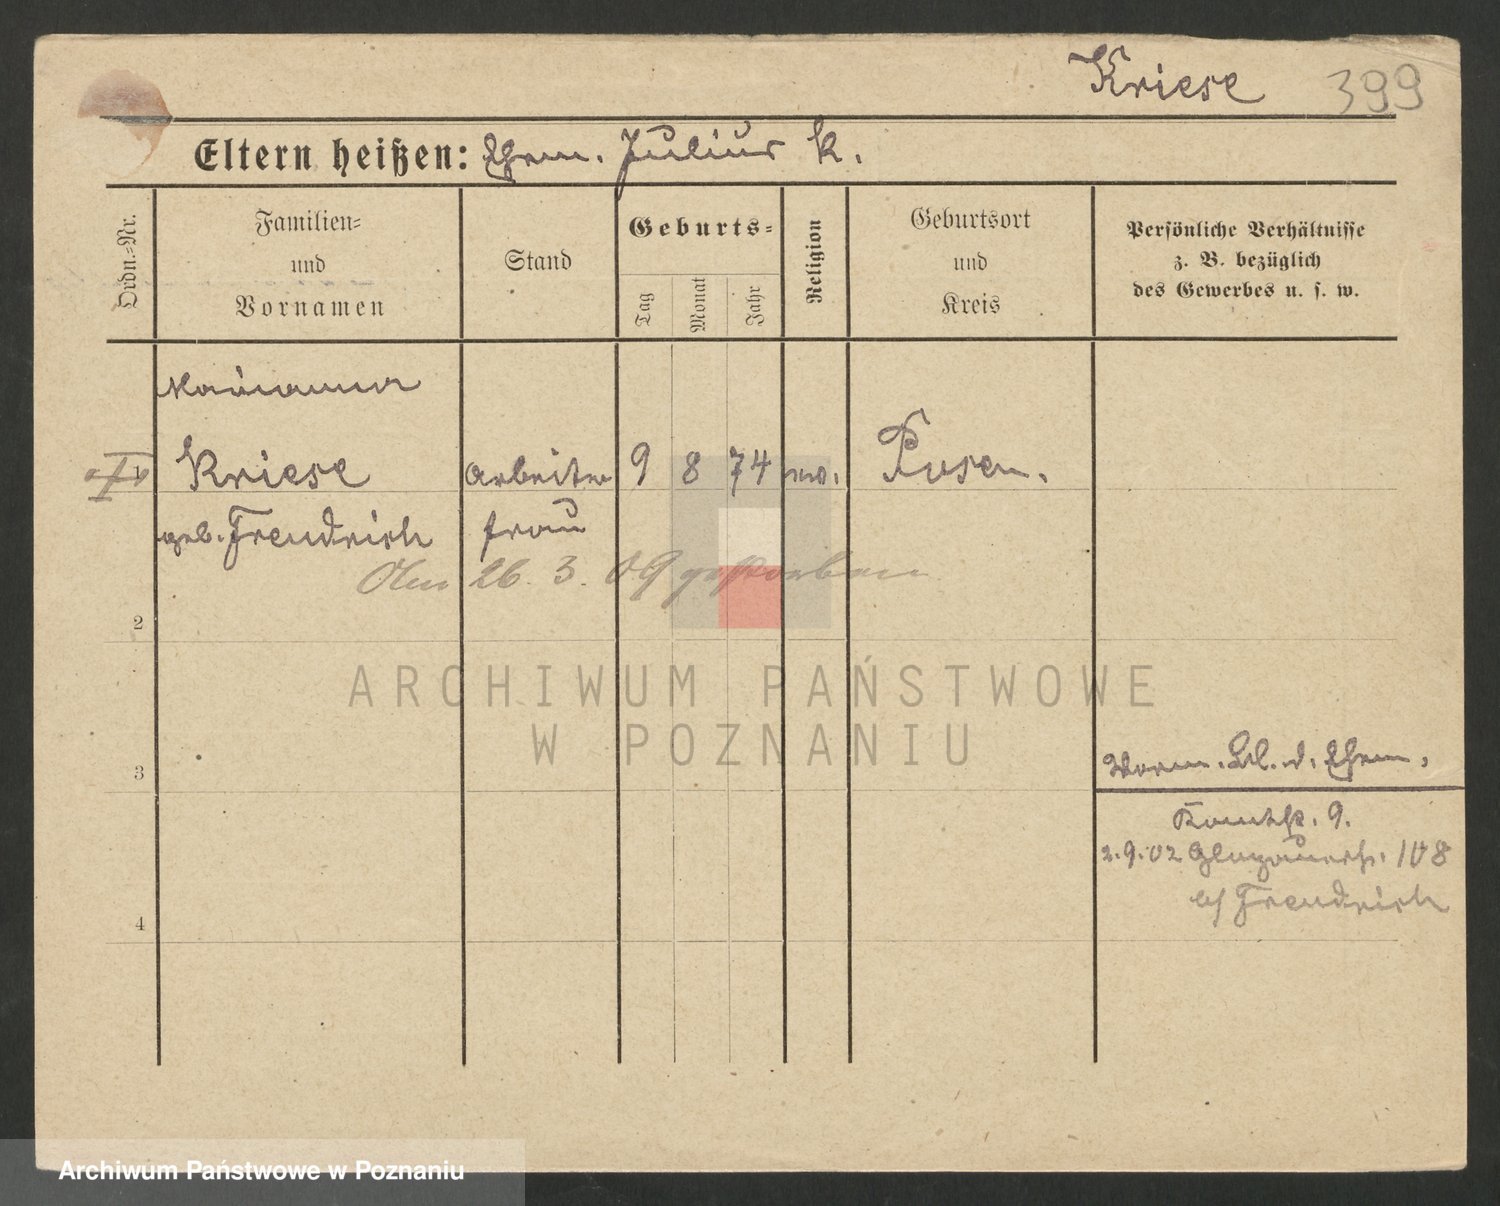 Kriese 399
Eltern heißen: Ehem. Julius K.
Ordn.-Nr.
Familien-
und
Vornamen
Stand
Geburts-
Tag
Monat
Jahr
Religion
Geburtsort
und
Kreis
Persönliche Verhältnisse
z. B. bezüglich
des Gewerbes u. s. w.
Marianna
1 Kriese Arbeiter 9 8 74 Posen.
geb. Frendrich frau
Am 26. 3. 09 gestorben
2
ARCHIWUM PAŃSTWOWE
W POZNANIU
3
Worm. Bl. d. Ehem.
9.
2.9.02 Glogauerstr. 108
b/ Frendrich
4
Archiwum Państwowe w Poznaniu